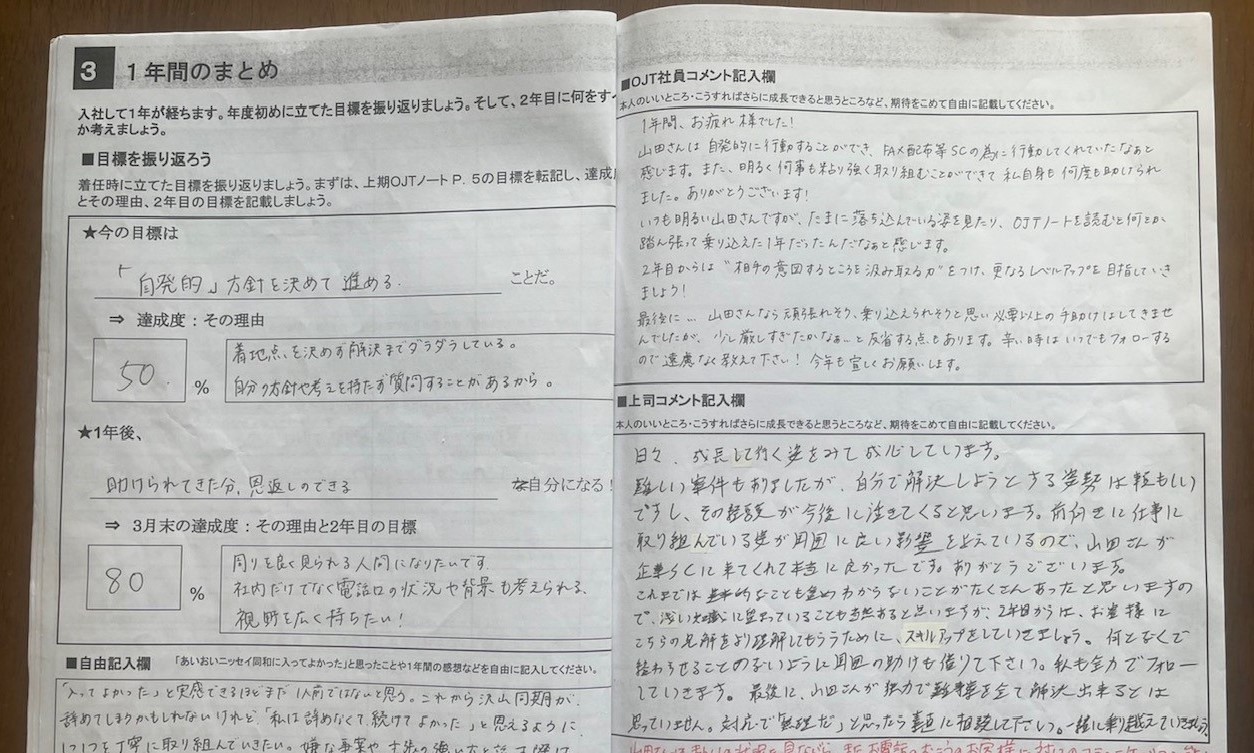 3 1年間のまとめ
入社して1年が経ちます。年度初めに立てた目標を振り返りましょう。そして、2年目に何をすべ
か考えましょう。
■目標を振り返ろう
着任時に立てた目標を振り返りましょう。まずは、上期OJTノートP.5の目標を転記し、達成度
とその理由、2年目の目標を記載しましょう。
★今の目標は
「自発的」方針を決めて進める. ことだ。
⇒ 達成度:その理由
50. %
着地点を決めず解決までダラダラしている。
自分の方針や考えを持たず質問することがあるから。
★1年後、
助けられてきた分、恩返しのできる な自分になる!
⇒ 3月末の達成度:その理由と2年目の目標
80 %
周りを良く見られる人間になりたいです.
社内だけでなく電話口の状況や背景も考えられる、
視野を広く持ちたい!
■自由記入欄 「あいおいニッセイ同和に入ってよかった」と思ったことや1年間の感想などを自由に記入してください。
「入ってよかった」と実感できるほどまだ1人前ではないと思う。これから沢山同期が、
辞めてしまうかもしれないけれど、「私は辞めなくて、続けてよかった」と思えるように
1つ1つを丁寧に取り組んでいきたい。嫌な事案や
■OJT社員コメント記入欄
本人のいいところ・こうすればさらに成長できると思うところなど、期待をこめて自由に記載してください。
1年間、お疲れ様でした!
山田さんは自発的に行動することができ、FAX配布等SCの為に行動してくれていたなぁと
感じます。また、明るく何事も粘り強く取り組むことができて私自身も何度も助けられ
ました。ありがとうございます!
いつも明るい山田さんですが、たまに落ち込んでいる姿を見たり、OJTノートを読むと何とか
踏ん張って乗り越えた1年だったんだなぁと感じます。
2年目からは"相手の意図するところを汲み取る力"をつけ、更なるレベルアップを目指していき
ましょう!
最後に… 山田さんなら頑張れそう、乗り越えられそうと思い必要以上の手助けはしてきませ
んでしたが、少し厳しすぎたかなぁ…と反省する点もあります。辛い時はいつでもフォローする
ので遠慮なく教えて下さい!今年も宜しくお願いします。
■上司コメント記入欄
本人のいいところ・こうすればさらに成長できると思うところなど、期待をこめて自由に記載してください。
日々、成長して行く姿をみて感心しています。
難しい事件もありましたが、自分で解決しようとする姿勢は頼もしい
ですし、その経験が今後に活きてくると思います。前向きに仕事に
取り組んでいる姿が周囲に良い影響を与えているので、山田さんが
企業SCに来てくれて本当に良かったです。ありがとうございます。
これまでは基本的なことも含めわからないことがたくさんあったと思いますの
で、浅い知識に留まっていることも当然あると思いますが、2年目からは、お客様に
こちらの見解をより理解してもらうために、スキルアップをしていきましょう。何となくで
終わらせることのないように周囲の助けも借りて下さい。私も全力でフォロー
していきます。最後に、山田さんが独力で難事案を全て解決出来るとは
思っていません。対応で「無理だ」と思ったら素直に相談して下さい。一緒に乗り越えていきましょう。